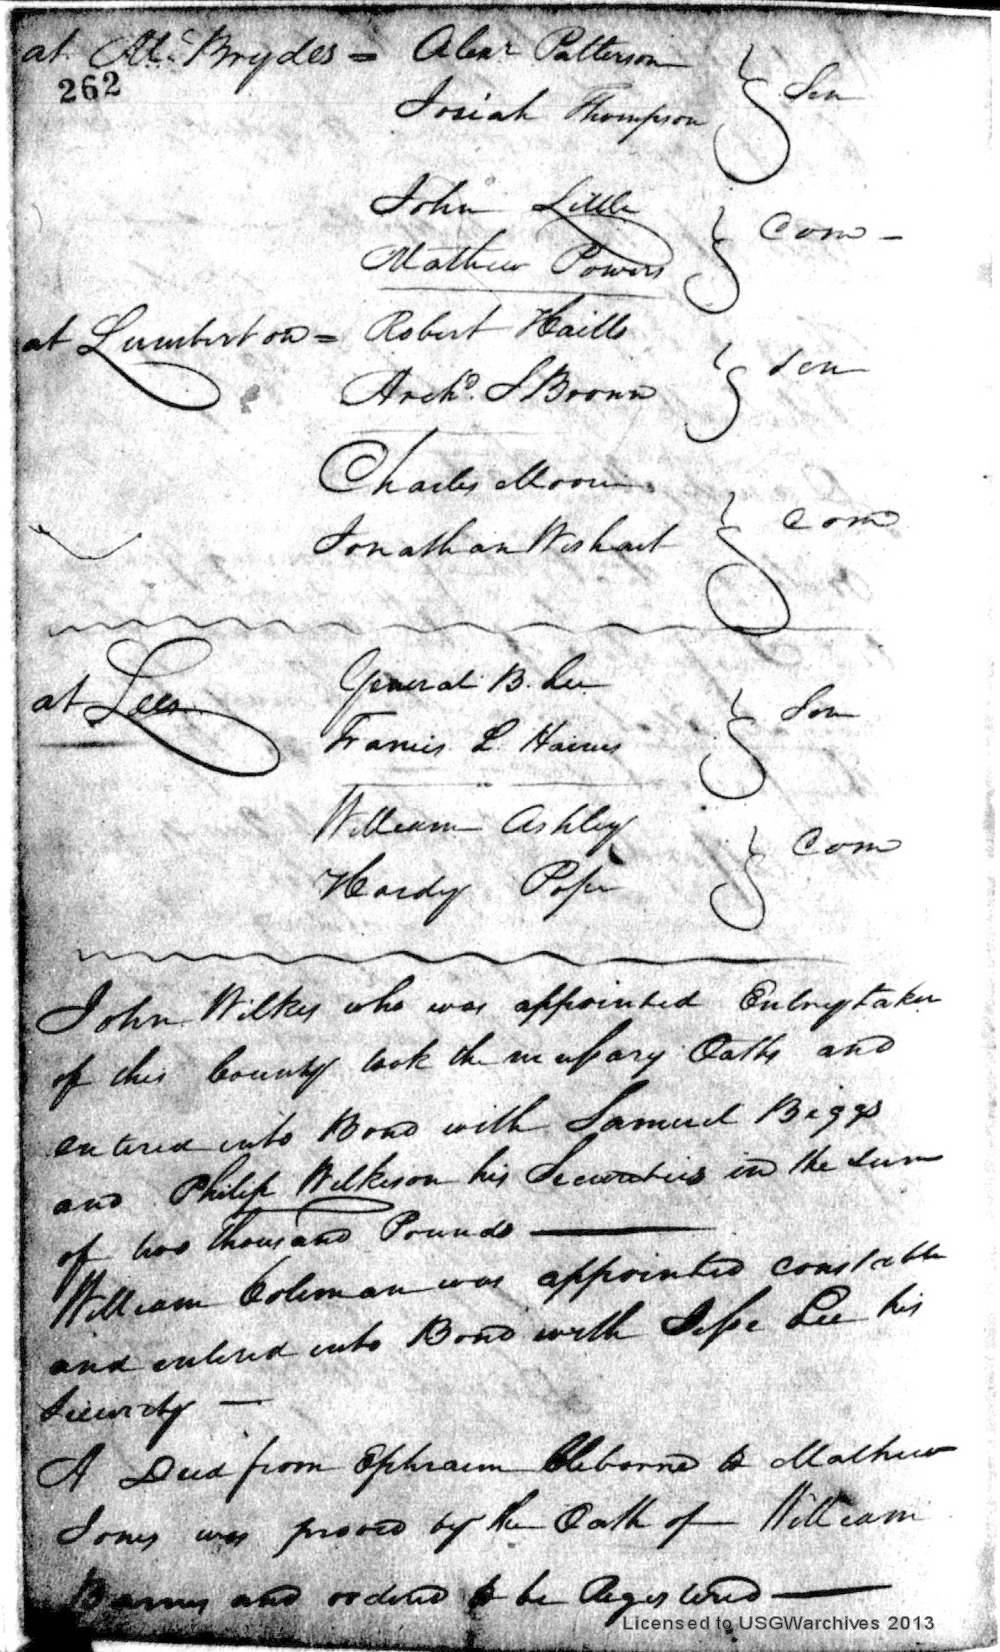 at McBrydes = Alexr Patterson
262
Josiah Thompson } Sen
John Little
Mathew Powers } Com -
at Lumberton = Robert Hails
Archd. S Brown } Sen
Charles Moore
Jonathan Wishart } Com
at Lees General B. Lee
Francis L. Haines } Sen
William Ashley
Hardy Pope } Com
John Wilkes who was appointed Entry taker
of this County took the nessary Oaths and
entered into Bond with Samuel Biggs
and Philip Wilkeson his Securities in the sum
of two thousand Pounds
William Coleman was appointed constable
and entered into Bond with Jesse Lee his
Security —
A Deed from Ephraim Cleborne to Mathew
Jones was proved by the Oath of William
Barnes and ordered to be Registered
Licensed to USGWarchives 2013